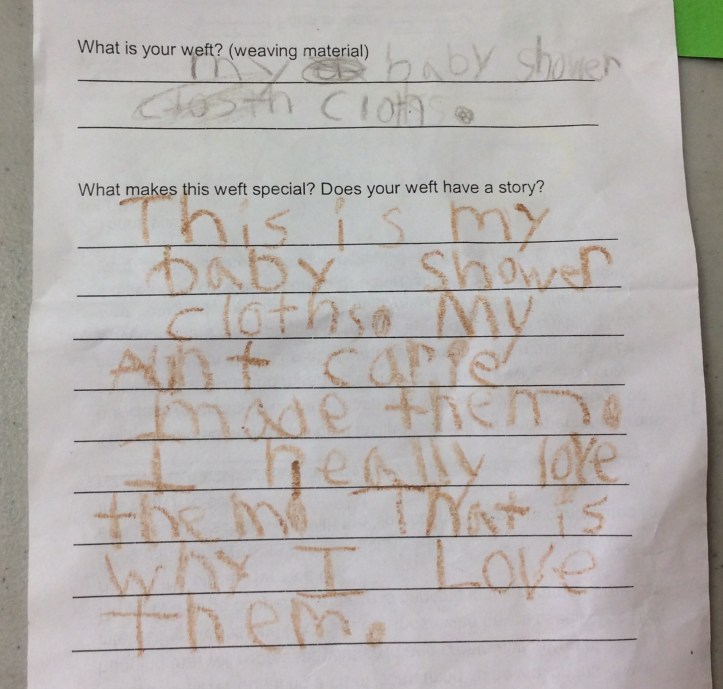 What is your weft? (weaving material)
my baby shower
cloths.
What makes this weft special? Does your weft have a story?
This is my
baby shower
cloths. My
Aint carrie
made them.
I really love
them! That is
why I Love
them.